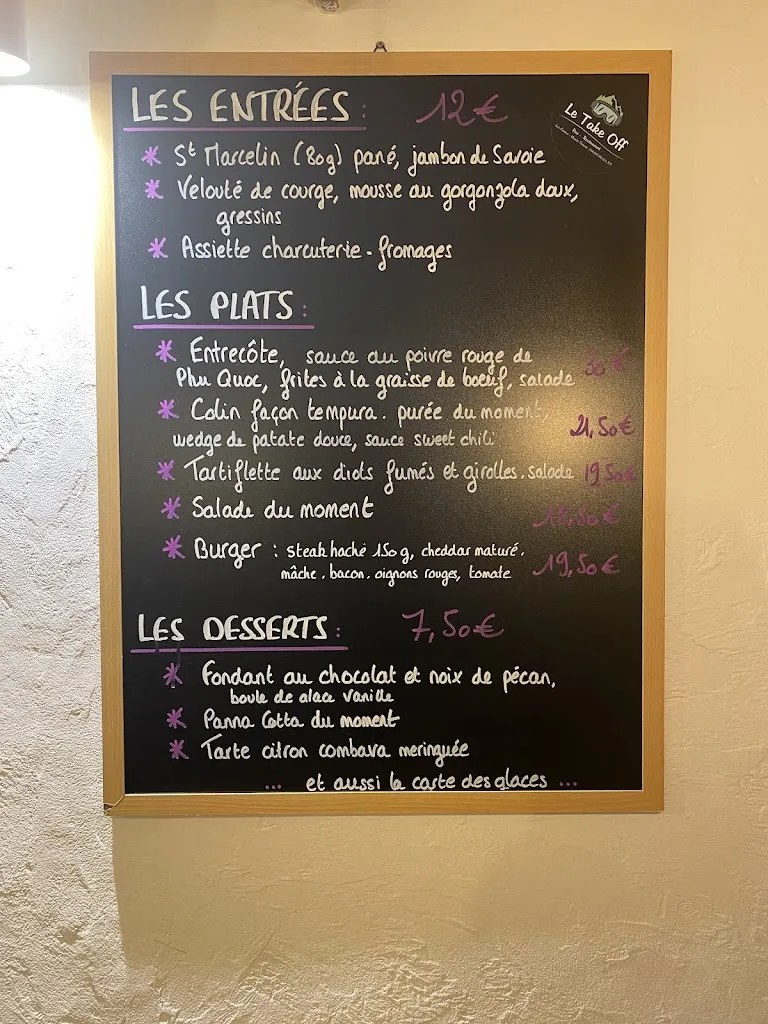 LES ENTRÉES : 12 €
Le Take Off
Bar - Restaurant
* St Marcelin (80g) pané, jambon de Savoie
* Velouté de courge, mousse au gorgonzola doux,
gressins
* Assiette charcuterie - fromages
LES PLATS :
* Entrecôte, sauce au poivre rouge de
Phu Quoc, frites à la graisse de boeuf, salade €
* Colin façon tempura. purée du moment,
wedge de patate douce, sauce sweet chili 21,50€
* Tartiflette aux diots fumés et girolles. salade 19,50€
* Salade du moment
* Burger : steak haché 150 g, cheddar maturé.
mâche. bacon. oignons rouges, tomate 19,50€
LES DESSERTS : 7,50€
* Fondant au chocolat et noix de pécan,
boule de glace vanille
* Panna Cotta du moment
* Tarte citron combava meringuée
... et aussi la carte des glaces ...